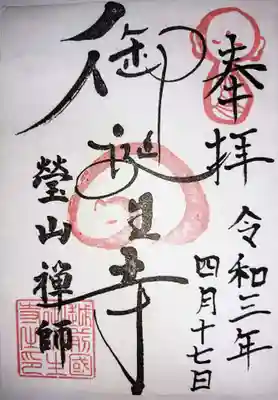 奉拝
令和三年
四月十七日
御誕生寺
瑩山禅師